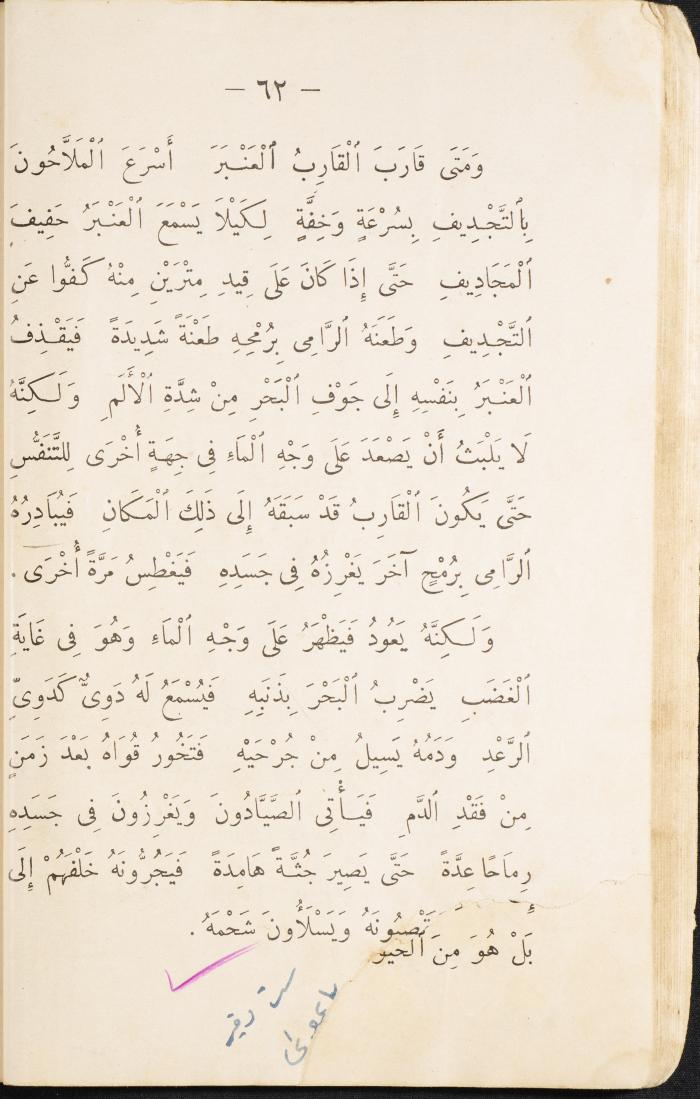 — ٦٢ —
وَمَتَى قَارَبَ ٱلْقَارِبُ ٱلْعَنْبَرَ أَسْرَعَ ٱلْمَلَّاحُونَ
بِٱلتَّجْدِيفِ بِسُرْعَةٍ وَخِفَّةٍ لِكَيْلَا يَسْمَعَ ٱلْعَنْبَرُ حَفِيفَ
ٱلْمَجَادِيفِ حَتَّى إِذَا كَانَ عَلَى قِيدِ مِتْرَيْنِ مِنْهُ كَفُّوا عَنِ
ٱلتَّجْدِيفِ وَطَعَنَهُ ٱلرَّامِى بِرُمْحِهِ طَعْنَةً شَدِيدَةً فَيَقْذِفُ
ٱلْعَنْبَرُ بِنَفْسِهِ إِلَى جَوْفِ ٱلْبَحْرِ مِنْ شِدَّةِ ٱلْأَلَمِ وَلَكِنَّهُ
لَا يَلْبَثُ أَنْ يَصْعَدَ عَلَى وَجْهِ ٱلْمَاءِ فِى جِهَةٍ أُخْرَى لِلتَّنَفُّسِ
حَتَّى يَكُونَ ٱلْقَارِبُ قَدْ سَبَقَهُ إِلَى ذَلِكَ ٱلْمَكَانِ فَيُبَادِرُهُ
ٱلرَّامِى بِرُمْحٍ آخَرَ يَغْرِزُهُ فِى جَسَدِهِ فَيَغْطِسُ مَرَّةً أُخْرَى .
وَلَكِنَّهُ يَعُودُ فَيَظْهَرُ عَلَى وَجْهِ ٱلْمَاءِ وَهُوَ فِى غَايَةِ
ٱلْغَضَبِ يَضْرِبُ ٱلْبَحْرَ بِذَنَبِهِ فَيُسْمَعُ لَهُ دَوِىٌّ كَدَوِىِّ
ٱلرَّعْدِ وَدَمُهُ يَسِيلُ مِنْ جُرْحَيْهِ فَتَخُورُ قُوَاهُ بَعْدَ زَمَنٍ
مِنْ فَقْدِ ٱلدَّمِ فَيَأْتِى ٱلصَّيَّادُونَ وَيَغْرِزُونَ فِى جَسَدِهِ
رِمَاحًا عِدَّةً حَتَّى يَصِيرَ جُثَّةً هَامِدَةً فَيَجُرُّونَهُ خَلْفَهُمْ إِلَى
وَيَسْلَأُونَ شَحْمَهُ .
بَلْ هُوَ مِنَ